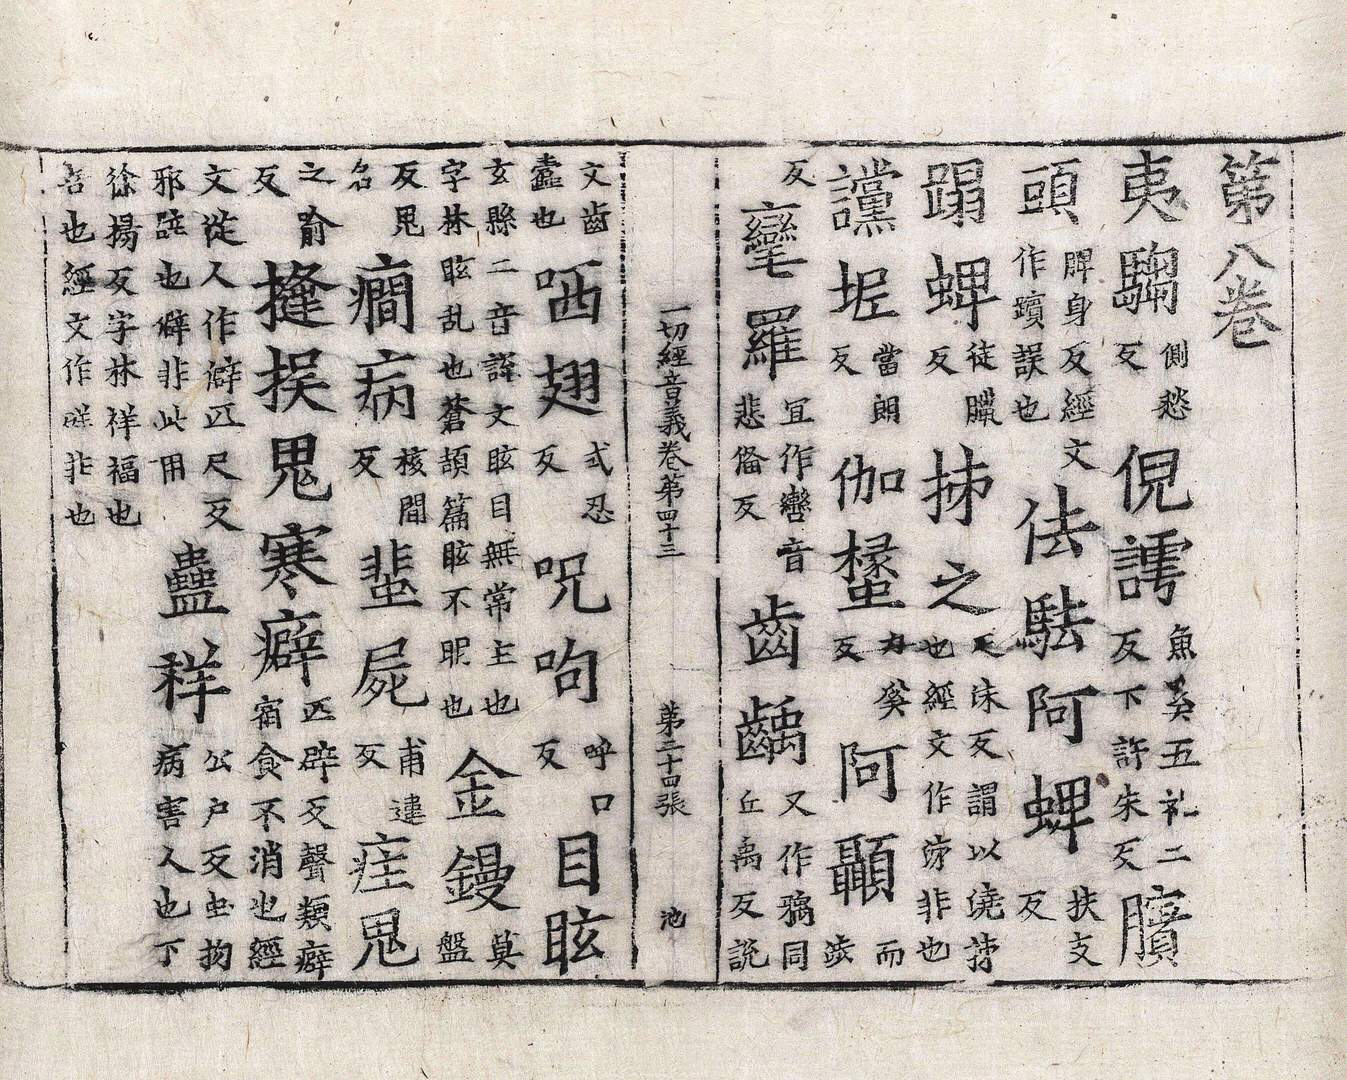 第八卷
夷䮲側愁反倪譳魚奚五礼二反下許朱反臏
頭髀身反經文作躓誤也佉駄阿蜱扶支反
蹋蜱徒臘反抪之沬反謂以澆也經文作非也
讜抳當朗反伽蠡力奚反阿顳而涉
反㲶羅宜作巒音悲俻反齒齲又作同丘禹反說
一切經音義卷第四十三 第二十四張 池
文齒蠹也哂翅式忍反呪呴呼口反目眩
玄縣二音說文眩目無常主也字林眩乱也蒼頡篇眩不眠也金鏝莫盤
反鬼名癎病核間反蜚屍甫違反鬼
之喻反鬼寒癖匹辟反聲類癖宿食不消也經
文從人作僻匹尺反邪僻也僻非此用蠱祥公戶反虫物病害人也下
徐揚反字林祥福也善也經文作非也